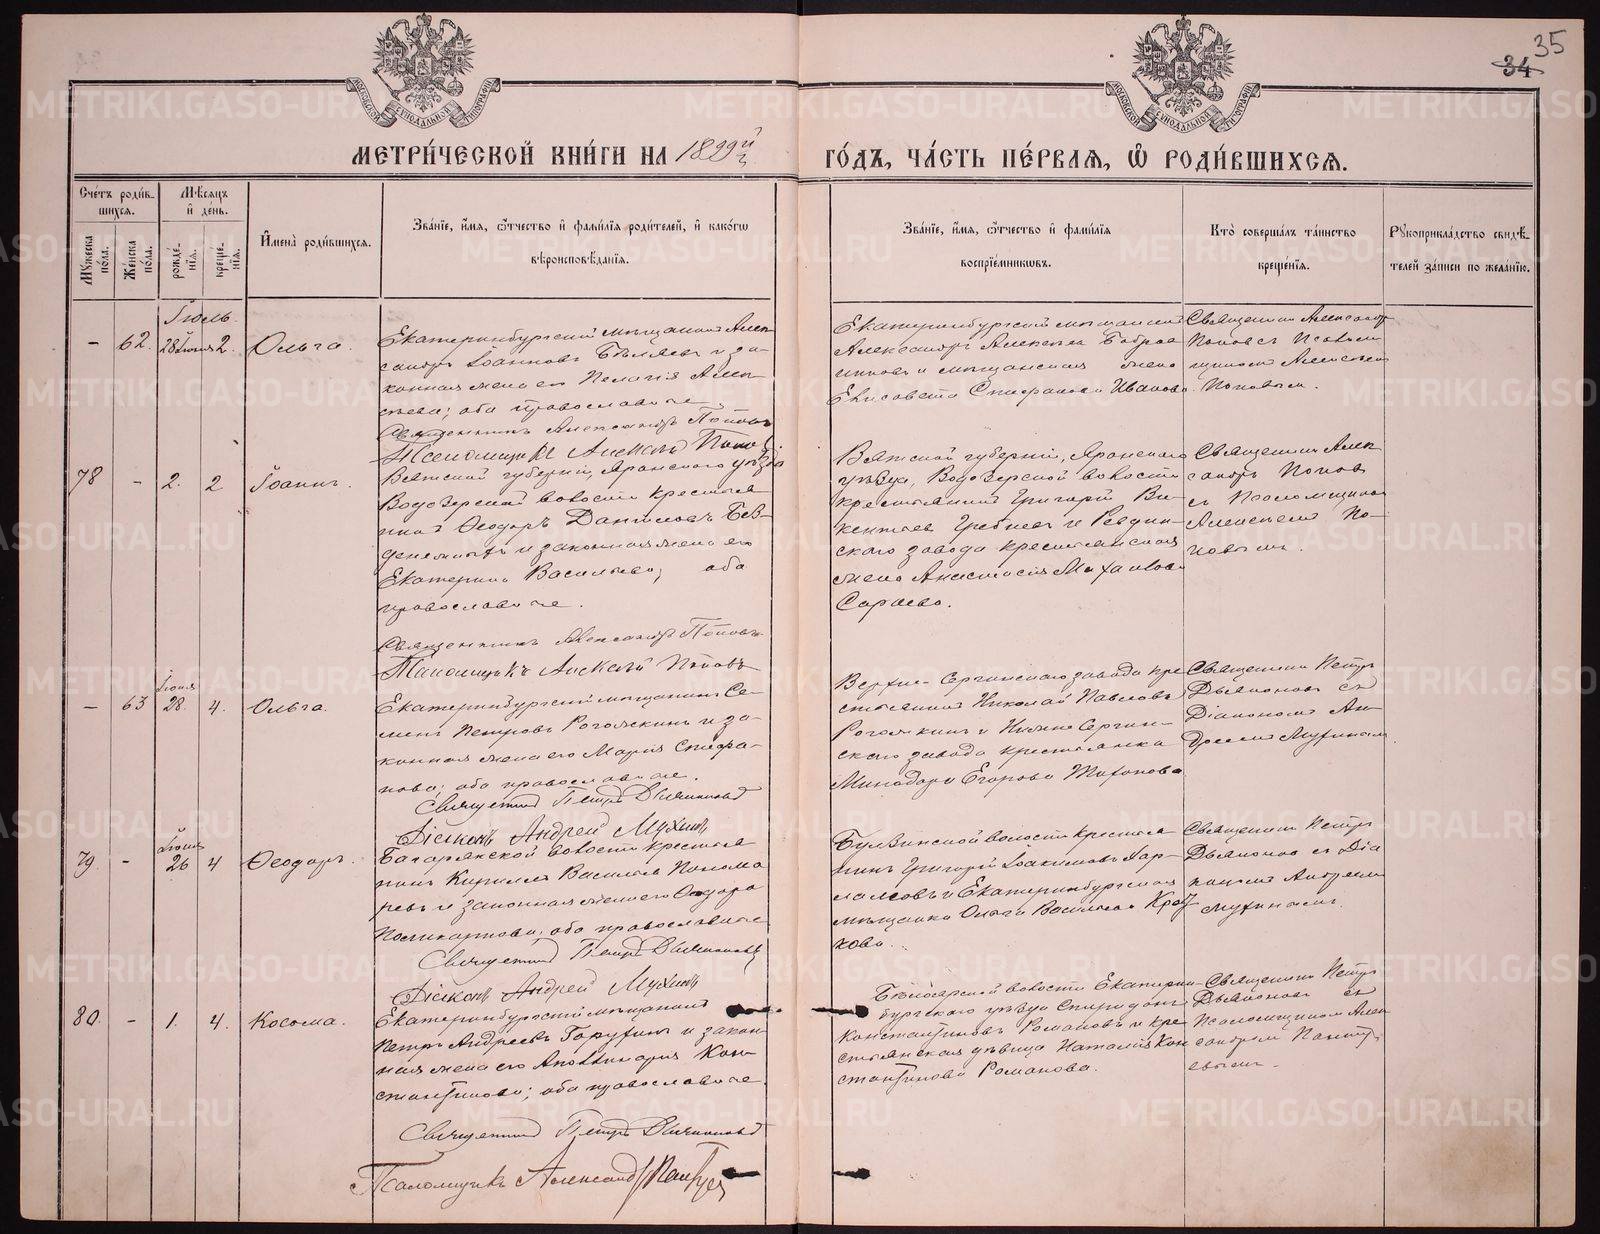 35
34
МЕТРИ́ЧЕСКОЙ КНИ́ГИ НА 1899й г
ГО́ДЪ, ЧА́СТЬ ПЕ́РВАЯ, Ѡ РОДИ́ВШИХСЯ.
Сче́тъ роди́в-
шихся.
Мѣсяцъ
и́ де́нь.
Му́жеска
по́ла.
Же́нска
по́ла.
рожде́-
нїя.
креще́-
нїя.
И́мена̀ роди́вшихся.
Зва́нїе, и́мя, ѻ́тчество и́ фами́лїя роди́телей, и́ како́гѡ
вѣроисповѣданїя.
Зва́нїе, и́мя, ѻ́тчество и́ фами́лїя
воспрїе́мниковъ.
Кто̀ соверша́лъ та́инство
креще́нїя.
Рꙋкоприкла́дство свидѣ́-
телей за́писи по жела́нїю.
Іюль.
– 62. 28 Іюня 2. Ольга.
Екатеринбургскій мѣщанинъ Алек-
сандръ Іоанновъ Бѣляевъ и за-
конная жена его Пелагія Алек-
сѣева; оба православные.
Священникъ Александръ Поповъ
Псаломщикъ Алексѣй Поповъ
Екатеринбургскій мѣщанинъ
Александръ Алексѣевъ
и мѣщанская жена
Елисавета Иванова.
Священникъ Александръ
Поповъ съ Псалом-
щикомъ Алексѣемъ
Поповымъ.
78 – 2. 2 Іоаннъ.
Вятской губерніи, Яранскаго уѣзда
Водозерской волости крестья-
нинъ Ѳеодоръ Даниловъ
и законная жена его
Екатерина Васильева; оба
православные.
Священникъ Александръ Поповъ
Псаломщикъ Алексѣй Поповъ
Вятской губерніи, Яранскаго
уѣзда, Водозерской волости
крестьянинъ Григорій Ви-
кентьевъ и Ревдин-
скаго завода крестьянская
жена Анастасія Михайлова
Сараева.
Священникъ Алек-
сандръ Поповъ
съ Псаломщикомъ
Алексѣемъ По-
повымъ.
– 63 Іюня 28. 4. Ольга.
Екатеринбургскій мѣщанинъ Се-
менъ Петровъ Рогожкинъ и за-
конная жена его Марія Стефа-
нова; оба православные.
Священникъ Петръ Дьяконовъ
Діаконъ Андрей Мухинъ
Верхне-Сергинскаго завода кре-
стьянинъ Николай Павловъ
Рогожкинъ и Нижне Сергин-
скаго завода крестьянка
Минодора Егорова
Священникъ Петръ
Дьяконовъ съ
Діакономъ Ан-
дреемъ Мухинымъ.
79 – Іюня 26 4 Ѳеодоръ.
Багарякской волости крестья-
нинъ Кириллъ Васильевъ Понома-
ревъ и законная жена его Ѳеодора
Поликарпова; оба православные
Священникъ Петръ Дьяконовъ
Діаконъ Андрей Мухинъ
волости крестья-
нинъ Григорій Іоакимовъ Хар-
ламовъ и Екатеринбургская
мѣщанка Ольга Васильева
Священникъ Петръ
Дьяконовъ съ Діа-
кономъ Андреемъ
Мухинымъ.
80. – 1. 4. Косома.
Екатеринбургскій мѣщанинъ
Петръ Андреевъ и закон-
ная жена его Аполлинарія Кон-
стантинова; оба православные.
Священникъ Петръ Дьяконовъ
Псаломщикъ Александръ
волости Екатерин-
бургскаго уѣзда Спиридонъ
Константиновъ Романовъ и кре-
стьянская дѣвица Наталія Кон
стантинова Романова.
Священникъ Петръ
Дьяконовъ съ
Псаломщикомъ Алек-
сандромъ
METRIKI.GASO-URAL.RU